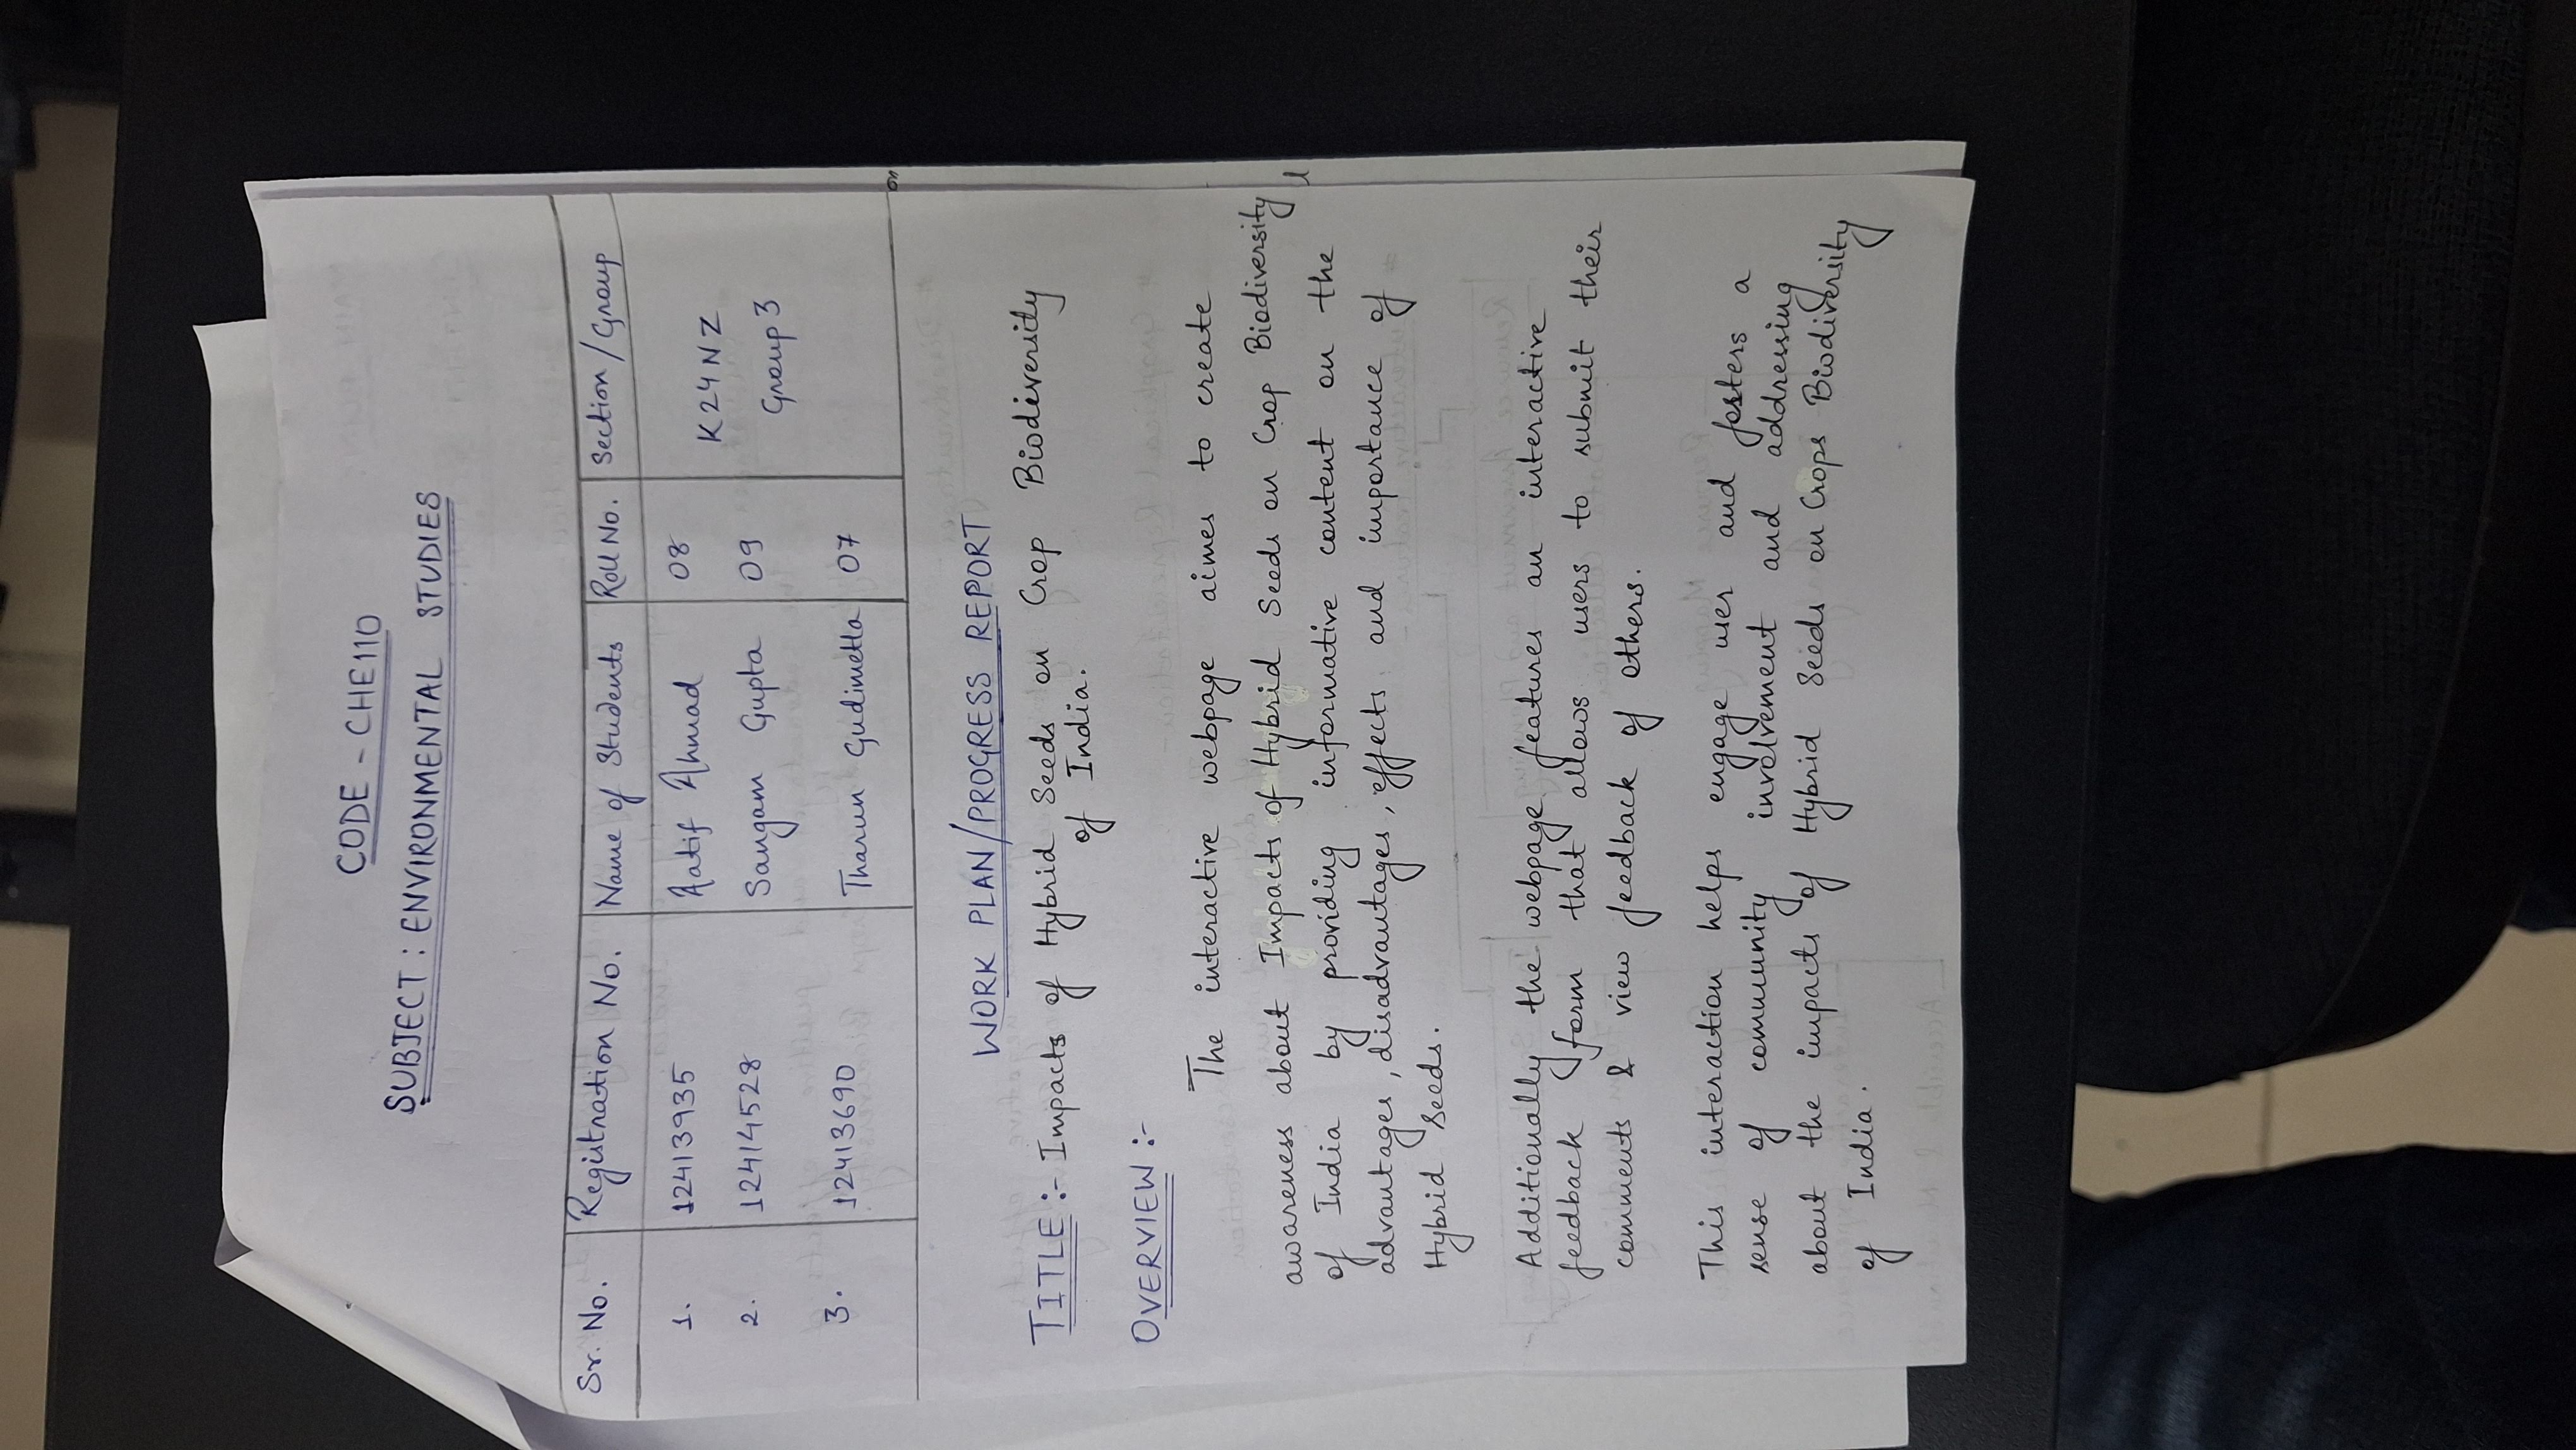 CODE - CHE110
SUBJECT : ENVIRONMENTAL STUDIES
Sr. No. Registration No. Name of Students Roll No. Section / Group
1. 12413935 Aatif Ahmad 08 K24NZ
2. 12414528 Sangam Gupta 09 Group 3
3. 12413690 Tharun Gudimetla 07
WORK PLAN/PROGRESS REPORT
TITLE :- Impacts of Hybrid Seeds on Crop Biodiversity
of India.
OVERVIEW :-
The interactive webpage aimes to create
awareness about Impacts of Hybrid Seeds on Crop Biodiversity
of India by providing informative content on the
advantages, disadvantages, effects and importance of
Hybrid Seeds.
Additionally the webpage features an interactive
feedback form that allows users to submit their
comments & view feedback of others.
This interaction helps engage user and fosters a
sense of community involvement and addressing
about the impacts of Hybrid Seeds on Crops Biodiversity
of India.